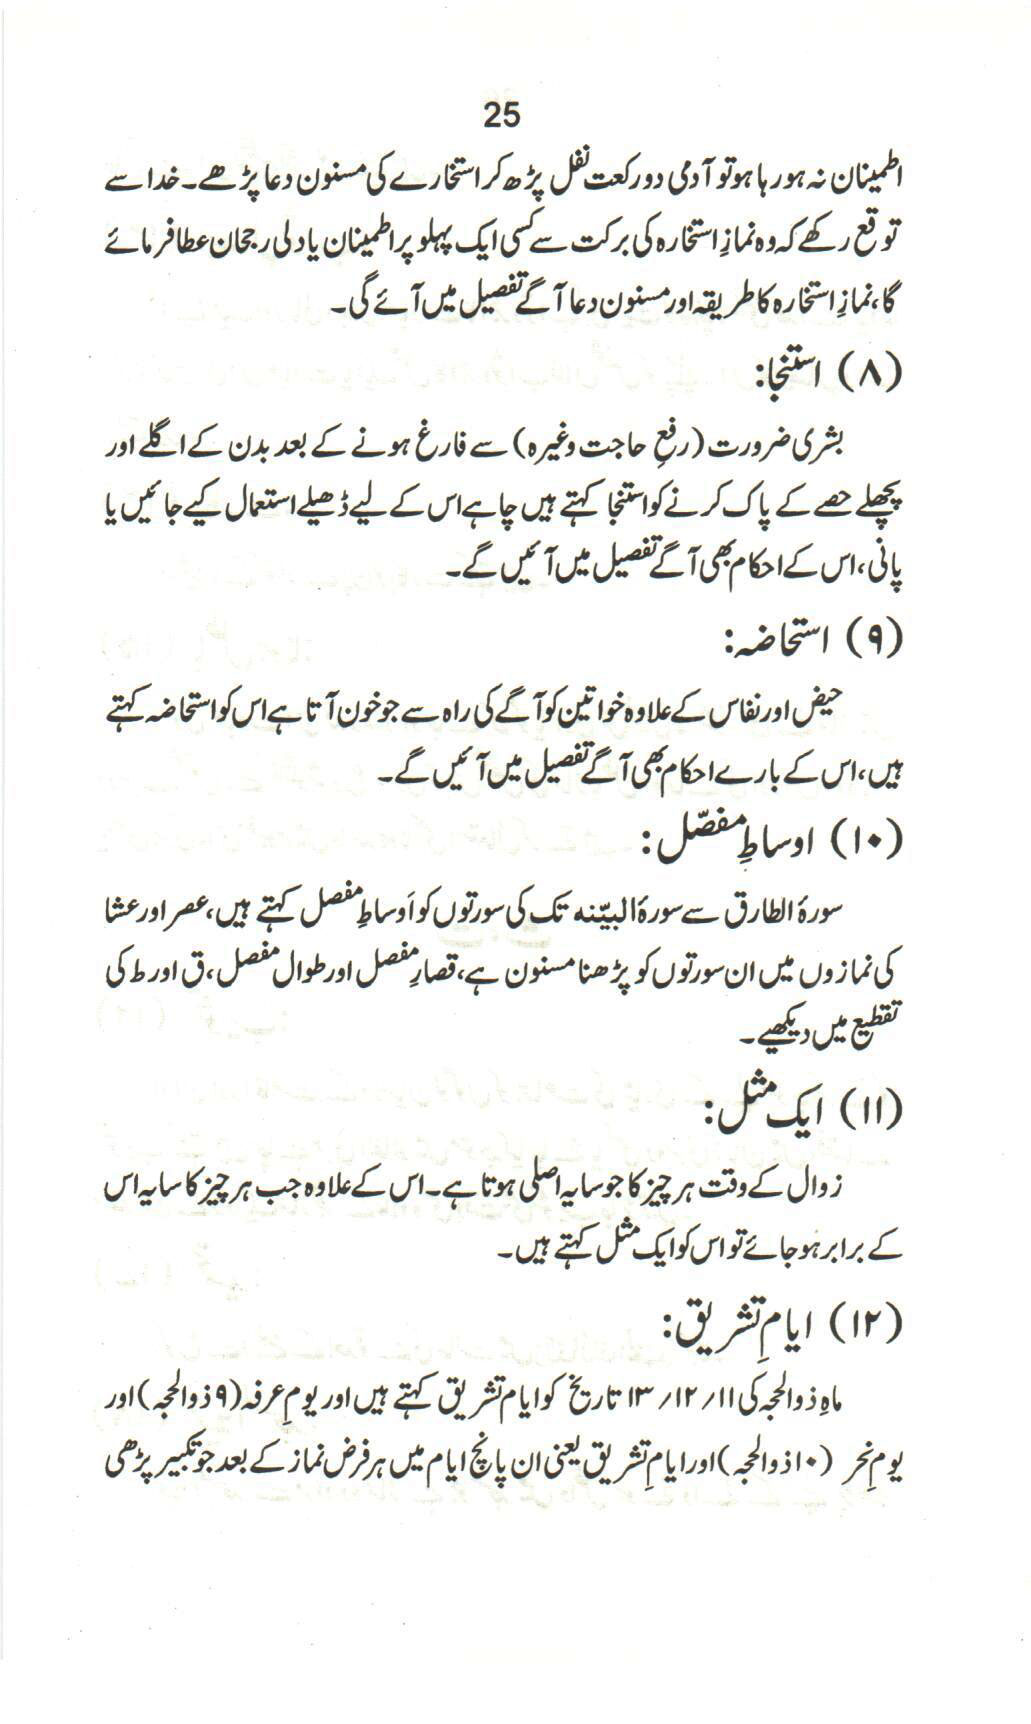 25
اطمینان نہ ہو رہا ہو تو آدمی دو رکعت نفل پڑھ کر استخارے کی مسنون دعا پڑھے۔ خدا سے
توقع رکھے کہ وہ نمازِ استخارہ کی برکت سے کسی ایک پہلو پر اطمینان یا دلی رجحان عطا فرمائے
گا، نمازِ استخارہ کا طریقہ اور مسنون دعا آگے تفصیل میں آئے گی۔
(۸) استنجا:
بشری ضرورت (رفعِ حاجت وغیرہ) سے فارغ ہونے کے بعد بدن کے اگلے اور
پچھلے حصے کے پاک کرنے کو استنجا کہتے ہیں چاہے اس کے لیے ڈھیلے استعمال کیے جائیں یا
پانی، اس کے احکام بھی آگے تفصیل میں آئیں گے۔
(۹) استحاضہ:
حیض اور نفاس کے علاوہ خواتین کو آگے کی راہ سے جو خون آتا ہے اس کو استحاضہ کہتے
ہیں، اس کے بارے احکام بھی آگے تفصیل میں آئیں گے۔
(۱۰) اوساطِ مفصّل:
سورۂ الطارق سے سورۂ البیّنہ تک کی سورتوں کو اَوساطِ مفصل کہتے ہیں، عصر اور عشا
کی نمازوں میں ان سورتوں کو پڑھنا مسنون ہے، قصارِ مفصل اور طوال مفصل، ق اور ط کی
تقطیع میں دیکھیے۔
(۱۱) ایک مثل:
زوال کے وقت ہر چیز کا جو سایہ اصلی ہوتا ہے۔ اس کے علاوہ جب ہر چیز کا سایہ اس
کے برابر ہو جائے تو اس کو ایک مثل کہتے ہیں۔
(۱۲) ایامِ تشریق:
ماہِ ذوالحجہ کی ۱۱، ۱۲، ۱۳ تاریخ کو ایام تشریق کہتے ہیں اور یومِ عرفہ (۹ ذوالحجہ) اور
یومِ نحر (۱۰ ذوالحجہ) اور ایامِ تشریق یعنی ان پانچ ایام میں ہر فرض نماز کے بعد جو تکبیر پڑھی